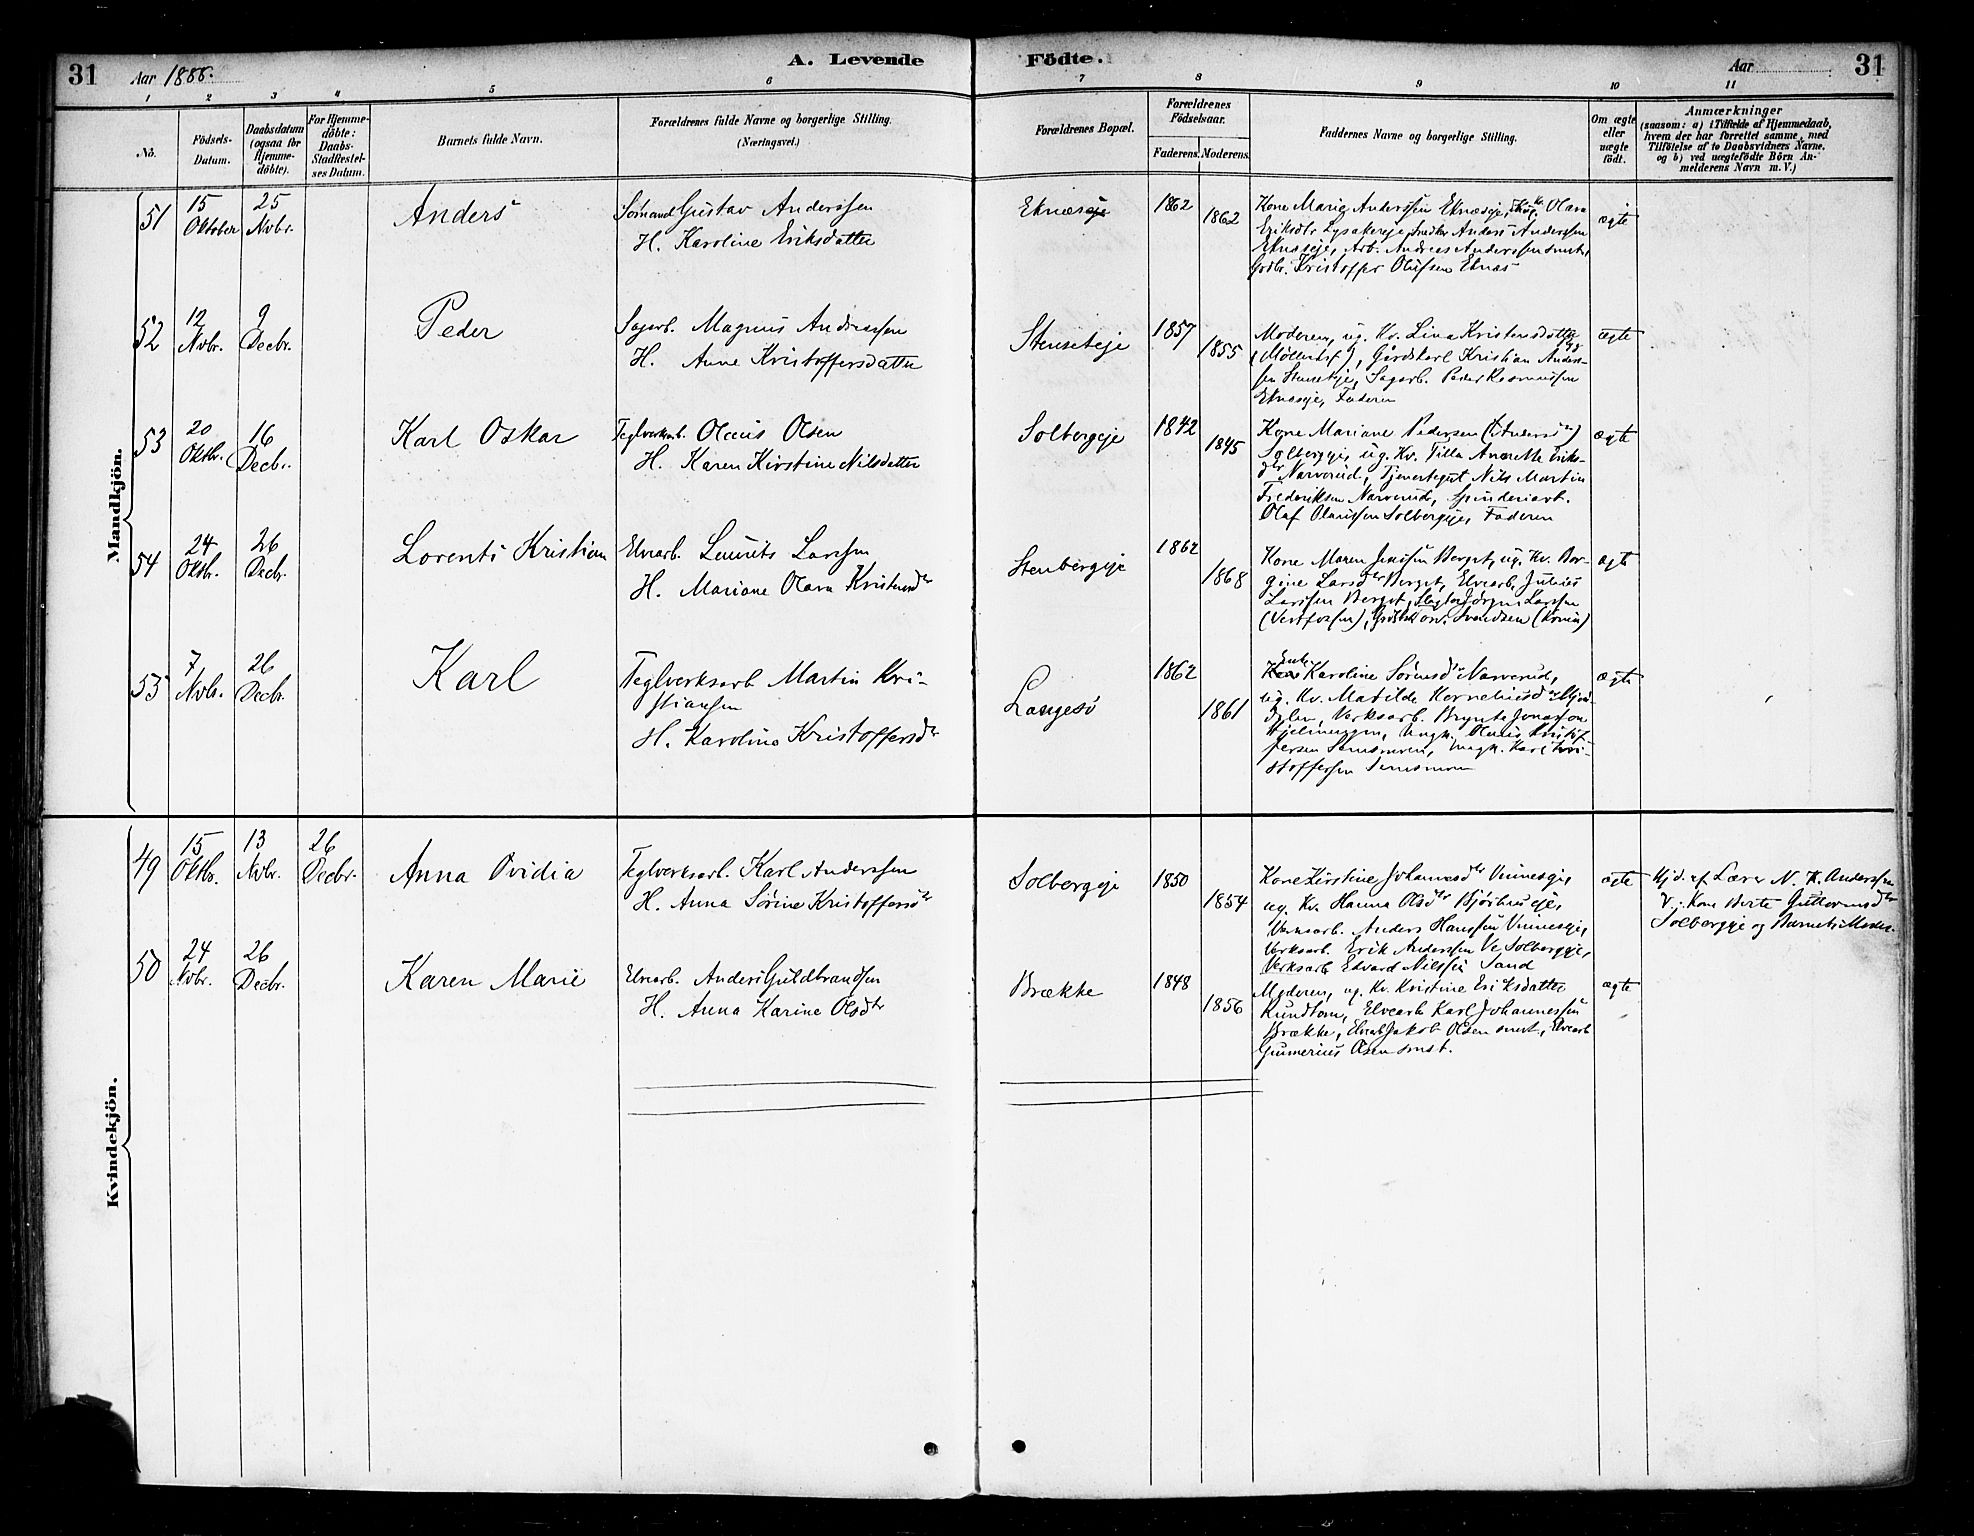 31
Aar 1888.
A. Levende
Födte.
Aar
31
1
2
3
4
5
6
7
8
9
10
11
No.
Födsels-
Datum.
Daabsdatum
(ogsaa for
Hjemme-
döbte).
For Hjemme-
döbte:
Daabs-
Stadfæstel-
ses Datum.
Barnets fulde Navn.
Forældrenes fulde Navne og borgerlige Stilling.
(Næringsvei.)
Forældrenes Bopæl.
Forældrenes
Födselsaar.
Faderens.
Moderens.
Faddernes Navne og borgerlige Stilling.
Om ægte
eller
uægte
födt.
Anmærkninger
(saasom: a) i Tilfælde af Hjemmedaab,
hvem der har forrettet samme, med
Tilföielse af to Daabsvidners Navne,
og b) ved uægtefödte Börn An-
melderens Navn m. V.)
Mandkjön.
51
15
Oktober
25
Novbr.
Anders
Sømand Gustav Anderssen
H. Karoline Eriksdatter
Eknæseje
1862
1862
Kone Marie Anderssen Eknæseje, Olava
Eriksdtr. Lysakereje, Anders Anderssen
Eknæseje, Arb. Andreas Anderssen smst.,
Grdbr. Kristoffer Olufsen Eknæs
ægte
52
12
Novbr.
9
Decbr.
Peder
Sagarb. Magnus Anderssen
H. Anne Kristoffersdatter
Stenseteje
1857
1855
Moderen, ug. Kv. Lina Kristensdatter
Gårdskarl Kristian Anders-
sen Stenseteje, Sagarb. Peder Rasmussen
Eknæseje, Faderen
ægte
53
20
Oktbr.
16
Decbr.
Karl Oskar
Teglverksarb. Olaus Olsen
H. Karen Kirstine Nilsdatter
Solbergeje
1842
1845
Kone Mariane Pedersen
Solbergeje, ug. Kv. Tilla Anette Eriks-
dtr Narverud, Tjenestegut Nils Martin
Frederiksen Narverud, Spinderiarb.
Olaf Olaussen Solbergeje, Faderen
ægte
54
24
Oktbr.
26
Decbr.
Lorents Kristian
Elvearb. Laurits Larssen
H. Mariane Olava Kristensdtr
Stenbergeje
1862
1868
Kone Maren Jenssen Berget, ug. Kv. Bor-
gine Larsdtr Berget, Elvearb. Julius
Larssen Berget, Jörgen Larssen
(Vestfossen), Svendsen
ægte
55
7
Novbr.
26
Decbr.
Karl
Teglverksarb Martin Kri-
stiansen
H. Karoline Kristoffersdtr
Langesø
1862
1861
Enke Karoline Sørensdtr Narverud,
ug. Kv. Matilde Korneliusdtr Mjøn-
dalen, Verksarb. Brynte Jonasson
Ungk. Olaus Kristof-
fersen Ungk. Karl Kri-
stoffersen
ægte
Kvindekjön.
49
15
Oktbr.
13
Novbr.
26
Decbr.
Anna Ovidia
Teglverksarb. Karl Anderssen
H. Anna Sørine Kristoffersdtr
Solbergeje
1850
1854
Kone Kirstine Johannesdtr Vinneseje,
ug. Kv. Hanna Olsdtr
Verksarb. Anders Hanssen Vinneseje,
Verksarb. Erik Anderssen Ve Solbergeje,
Verksarb Edvard Nilssen Sand
ægte
Hjd. af Lærer N. K. Anderssen
V.: Kone Berte Guttormsdtr
Solbergeje og Barnets Moder.
50
24
Novbr.
26
Decbr.
Karen Marie
Elvearb. Anders Guldbrandsen
H. Anna Karine Olsdtr
Brække
1848
1856
Moderen, ug. Kv. Kristine Eriksdatter
Elvearb Karl Johannessen
Brække, Elvearb Jakob Olsen smst., Elvearb
Gumerius Olsen smst.
ægte